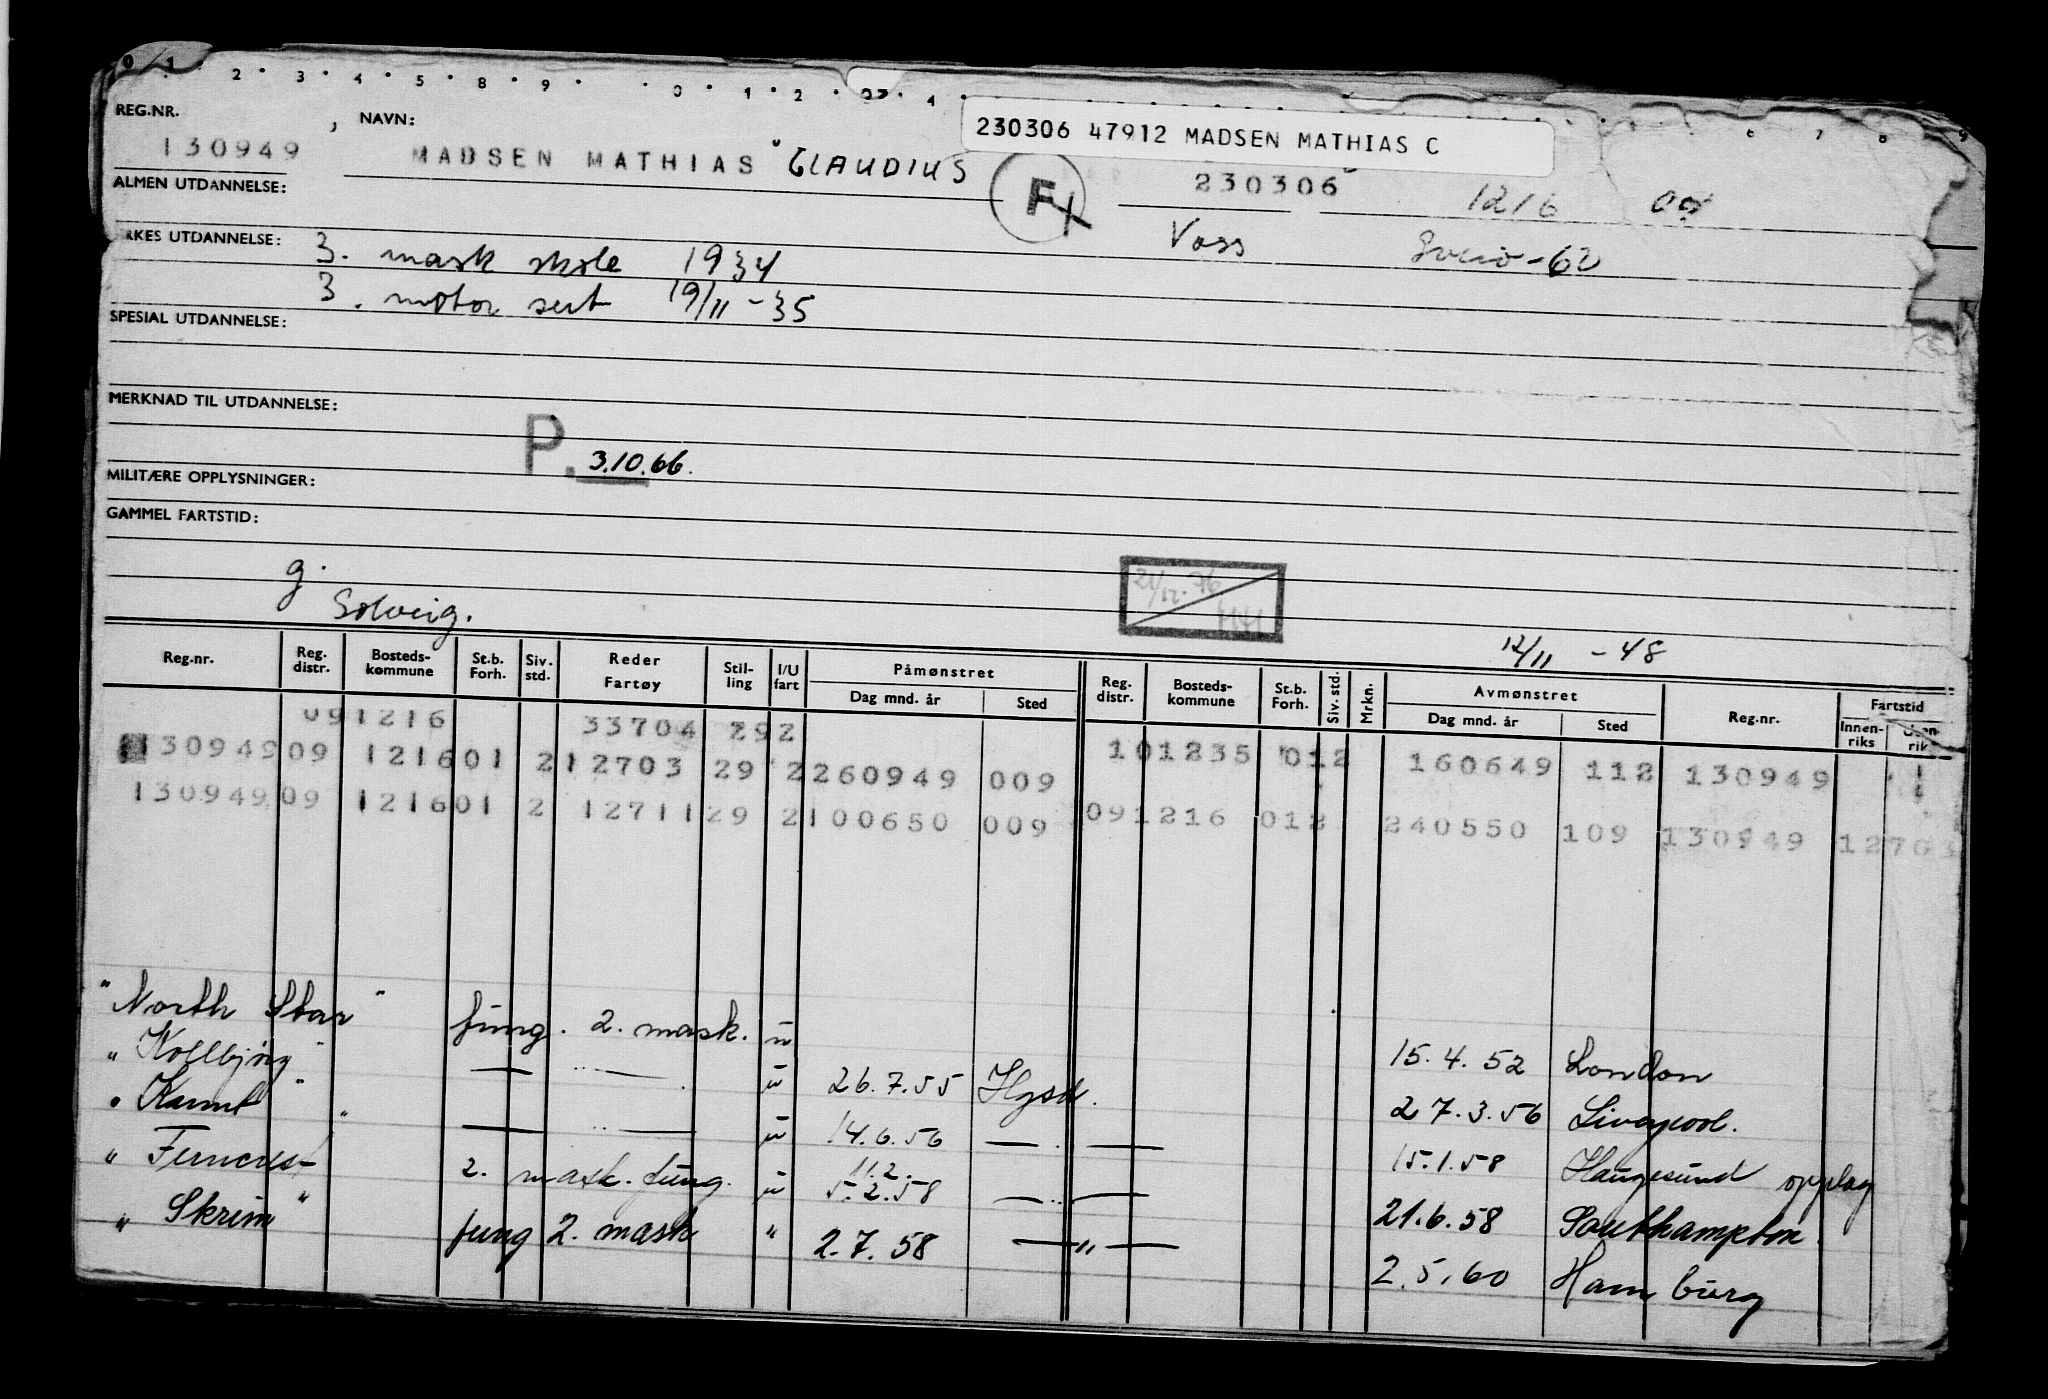 0 1 2 3 4 5 8 9 0 1 2 4 6 7 8 9
230306 47912 MADSEN MATHIAS C
REG.NR. NAVN:
130949 MADSEN MATHIAS CLAUDIUS 230306 1216 09
ALMEN UTDANNELSE: F Voss
RKES UTDANNELSE: 3. mask skole 1934
3. motor sert 19/11-35
SPESIAL UTDANNELSE:
MERKNAD TIL UTDANNELSE:
P. 3.10.66.
MILITÆRE OPPLYSNINGER:
GAMMEL FARTSTID:
g. Solveig. 12/11 - 48
Reg.nr. Reg. distr. Bosteds-kommune St.b. Forh. Siv. std. Reder Fartøy Stil-ling I/U fart Påmønstret Dag mnd. år Sted Reg. distr. Bosteds-kommune St.b. Forh. Siv. std. Mrkn. Avmønstret Dag mnd. år Sted Reg.nr. Fartstid Innen-riks
091216 33704 292 101235 012 160649 112 130949
130949 09 1216 01 2 12703 29 2 260949 009 091216 012 240550 109 130949 1270
130949 09 1216 01 2 12711 29 2 100650 009
"North Star" fung. 2. mask. u 15.4.52 London
"Kollbjørg" — " — u 26.7.55 Hgsd. 27.3.56 Liverpool.
"Karmt" — " — u 14.6.56 — " — 15.1.58 Haugesund opplag
"Ferncrest" 2. mask. fung. u 11.2. 5.2.58 — " — 21.6.58 Southampton.
"Skrim" fung 2. mask " 2.7.58 — " — 2.5.60 Hamburg